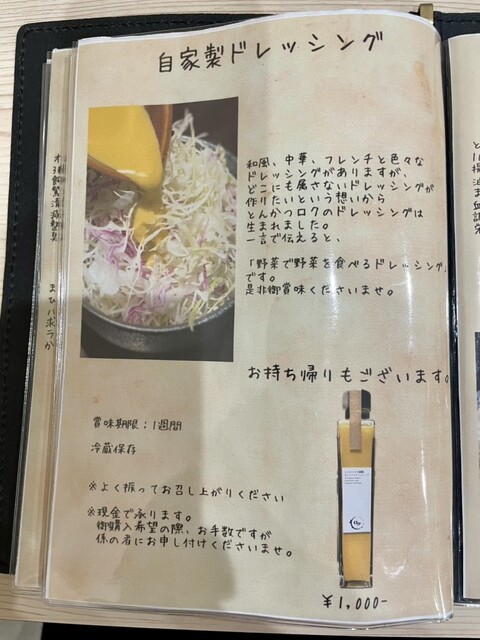 自家製ドレッシング
和風、中華、フレンチと色々な
ドレッシングがありますが、
どこにも属さないドレッシングが
作りたいという想いから
とんかつロクのドレッシングは
生まれました。
一言で伝えると、
「野菜で野菜を食べるドレッシング」
です。
是非御賞味くださいませ。
お持ち帰りもございます。
賞味期限：1週間
冷蔵保存
※よく振ってお召し上がりください
※現金で承ります。
御購入希望の際、お手数ですが
係の者にお申し付けくださいませ。
¥1,000-